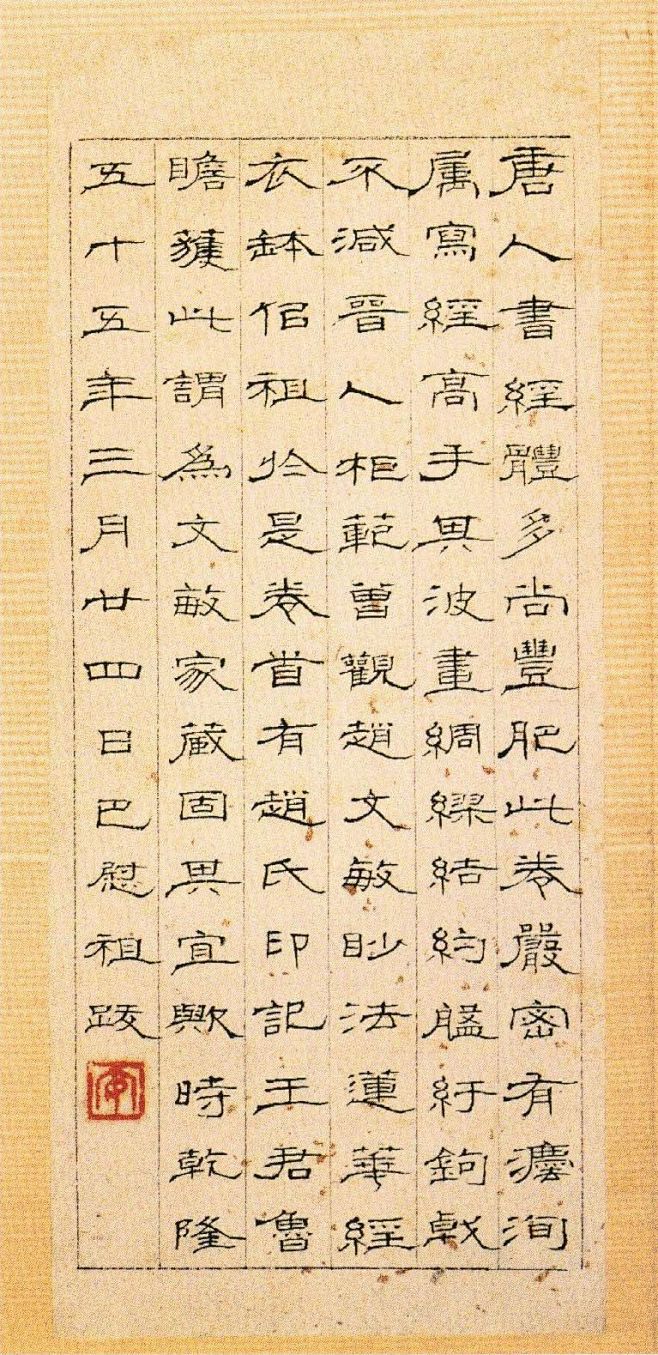 唐人書經體多尚豐肥此卷嚴密有灋洵
属寫經高手其波畫綢繆結約紆鉤戟
不減晉人柜範曾觀趙文敏眇法蓮華經
衣鉢佀祖於是卷首有趙氏印記王君魯
瞻獲此謂為文敏家藏固其宜歟時乾隆
五十五年三月廿四日巴慰祖跋